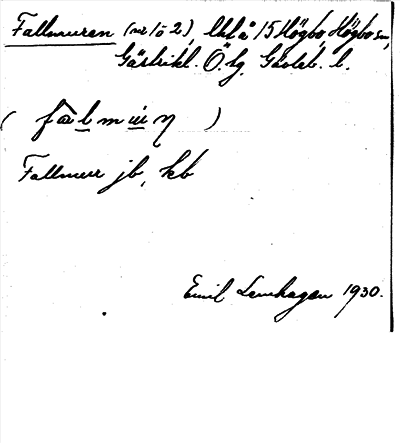 Fallmuren (nr 1 o 2), lhl å 15 Högbo, Högbo sn,
Gästrikl. Ö. tg. Gävleb. l.
( fa l m u η )
Fallmur jb, kb
Emil Lenhagen 1930.